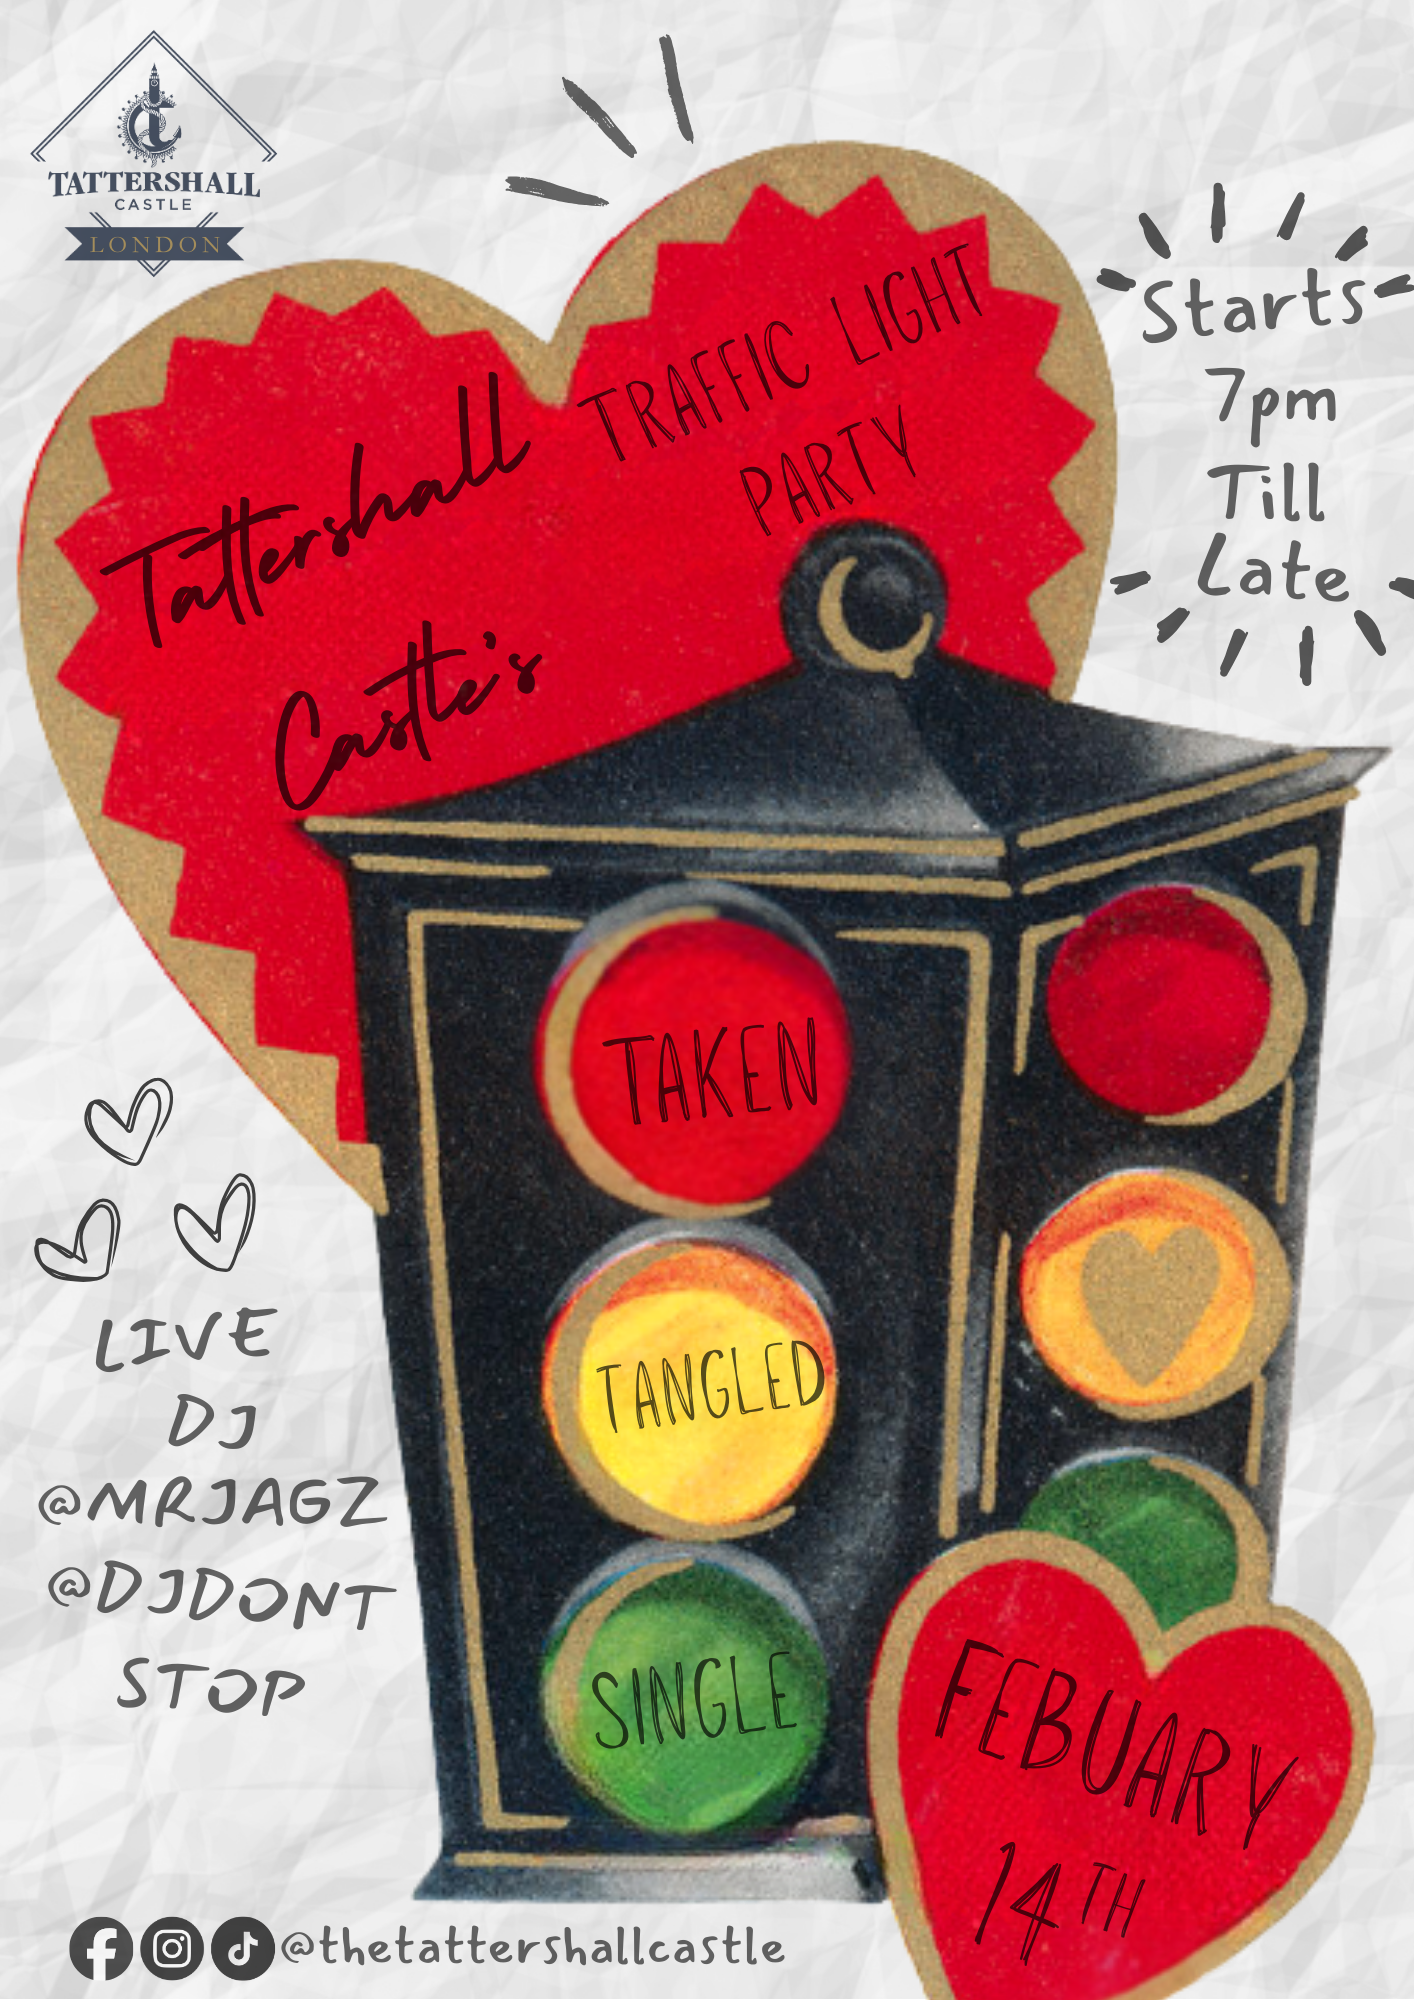 TATTERSHALL
CASTLE
LONDON
Tattershall
Castle's
TRAFFIC LIGHT
PARTY
Starts
7pm
Till
Late
TAKEN
TANGLED
SINGLE
LIVE
DJ
@MRJAGZ
@DJDONT
STOP
FEBUARY
14TH
@thetattershallcastle